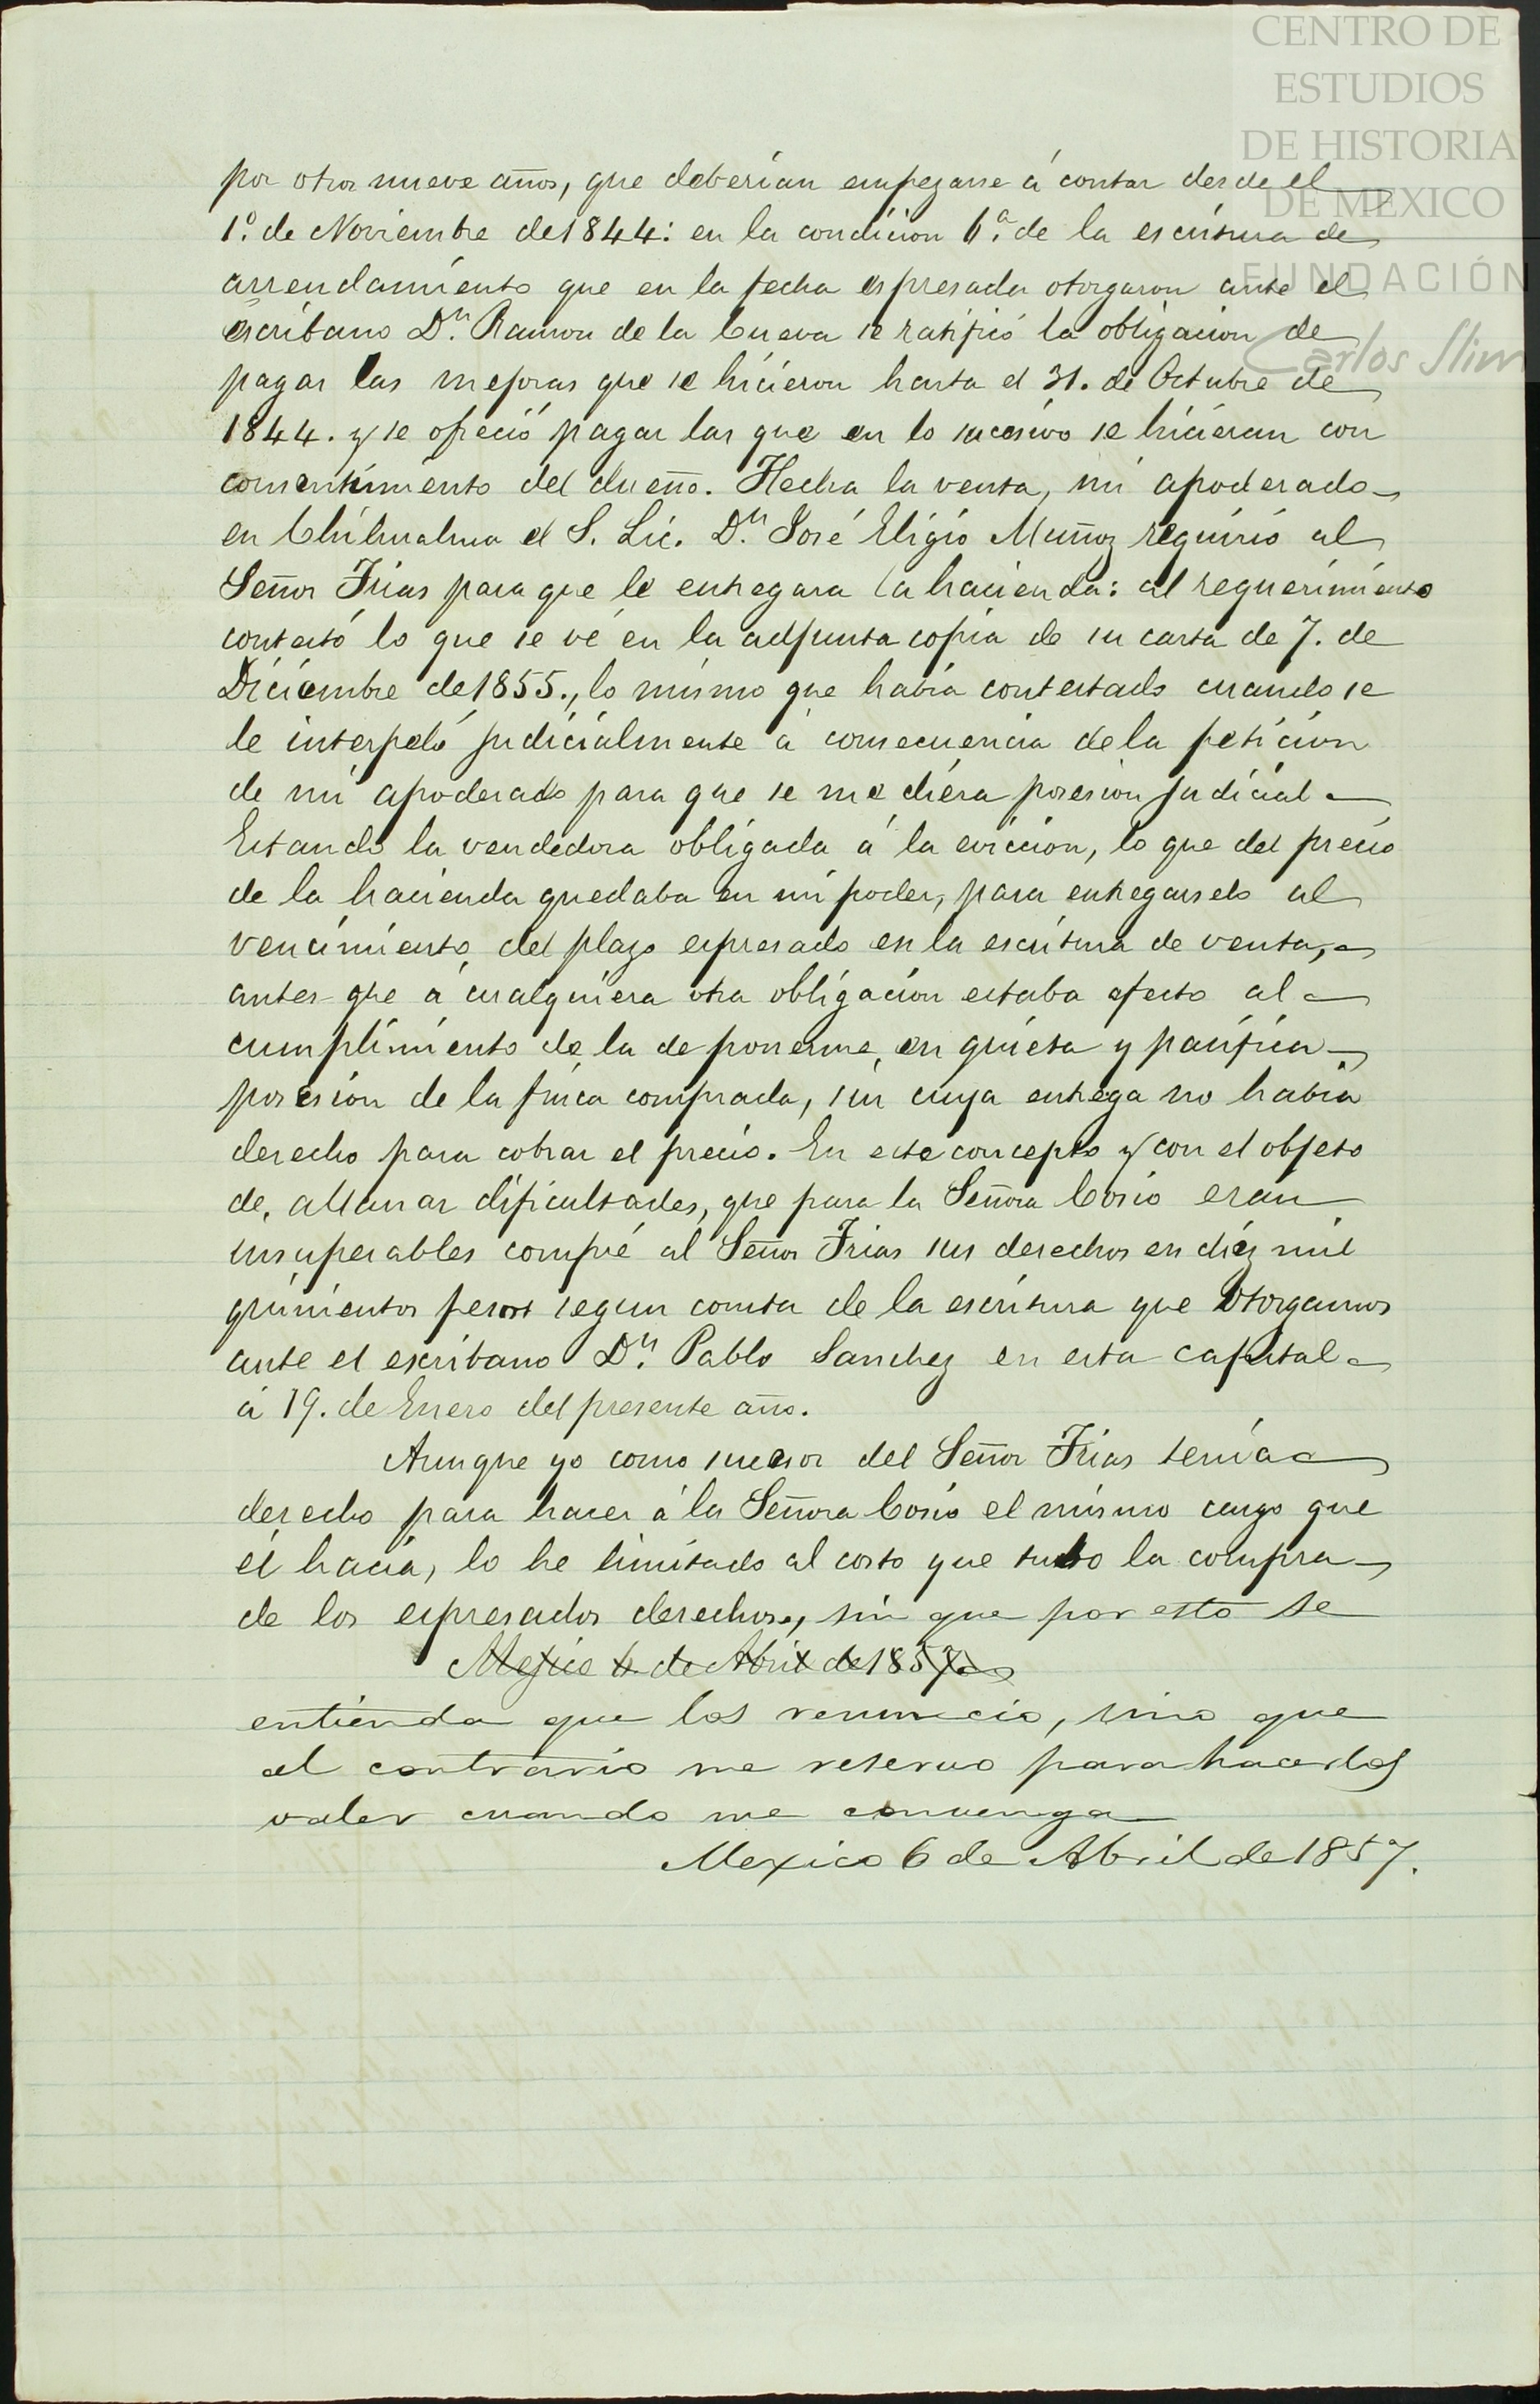 CENTRO DE
ESTUDIOS
DE HISTORIA
DE MEXICO
FUNDACIÓN
Carlos Slim
por otros nueve años, que deberian empezarse á contar desde el
1º. de Noviembre de 1844: en la condicion 6ª. de la escritura de
arrendamiento que en la fecha espresada otorgaron ante el
escribano Dn. Ramon de la Cueva se ratificó la obligacion de
pagar las mejoras que se hicieron hasta el 31. de Octubre de
1844. y se ofreció pagar las que en lo sucesivo se hicieran con
consentimiento del dueño. Hecha la venta, mi apoderado
en Chihuahua el S. Lic. Dn. José Eligio Muñoz requirió al
Señor Frias para que le entregara la hacienda: al requerimiento
contestó lo que se vé en la adjunta copia de su carta de 7. de
Diciembre de 1855., lo mismo que habia contestado cuando se
le interpeló judicialmente á consecuencia de la peticion
de mi apoderado para que se me diera posesion judicial
Estando la vendedora obligada á la eviccion, lo que del precio
de la hacienda quedaba en mi poder, para entregarselo al
vencimiento del plazo espresado en la escritura de venta,
antes que á cualquiera otra obligacion estaba afecto al
cumplimiento de la de ponerme en quieta y pacifica
posesion de la finca comprada, sin cuya entrega no habia
derecho para cobrar el precio. En este concepto y con el objeto
de allanar dificultades, que para la Señora Cosio eran
insuperables compré al Señor Frias sus derechos en diez mil
quinientos pesos segun consta de la escritura que otorgamos
ante el escribano Dn. Pablo Sanchez en esta capital
á 19. de Enero del presente año.
Aunque yo como sucesor del Señor Frias tenia
derecho para hacer á la Señora Cosio el mismo cargo que
él hacia, lo he limitado al costo que tubo la compra
de los espresados derechos, sin que por esto se
Mejico 6. de Abril de 1857.
entienda que los renuncio, sino que
al contrario me reservo para hacerlos
valer cuando me convenga
Mexico 6 de Abril de 1857.